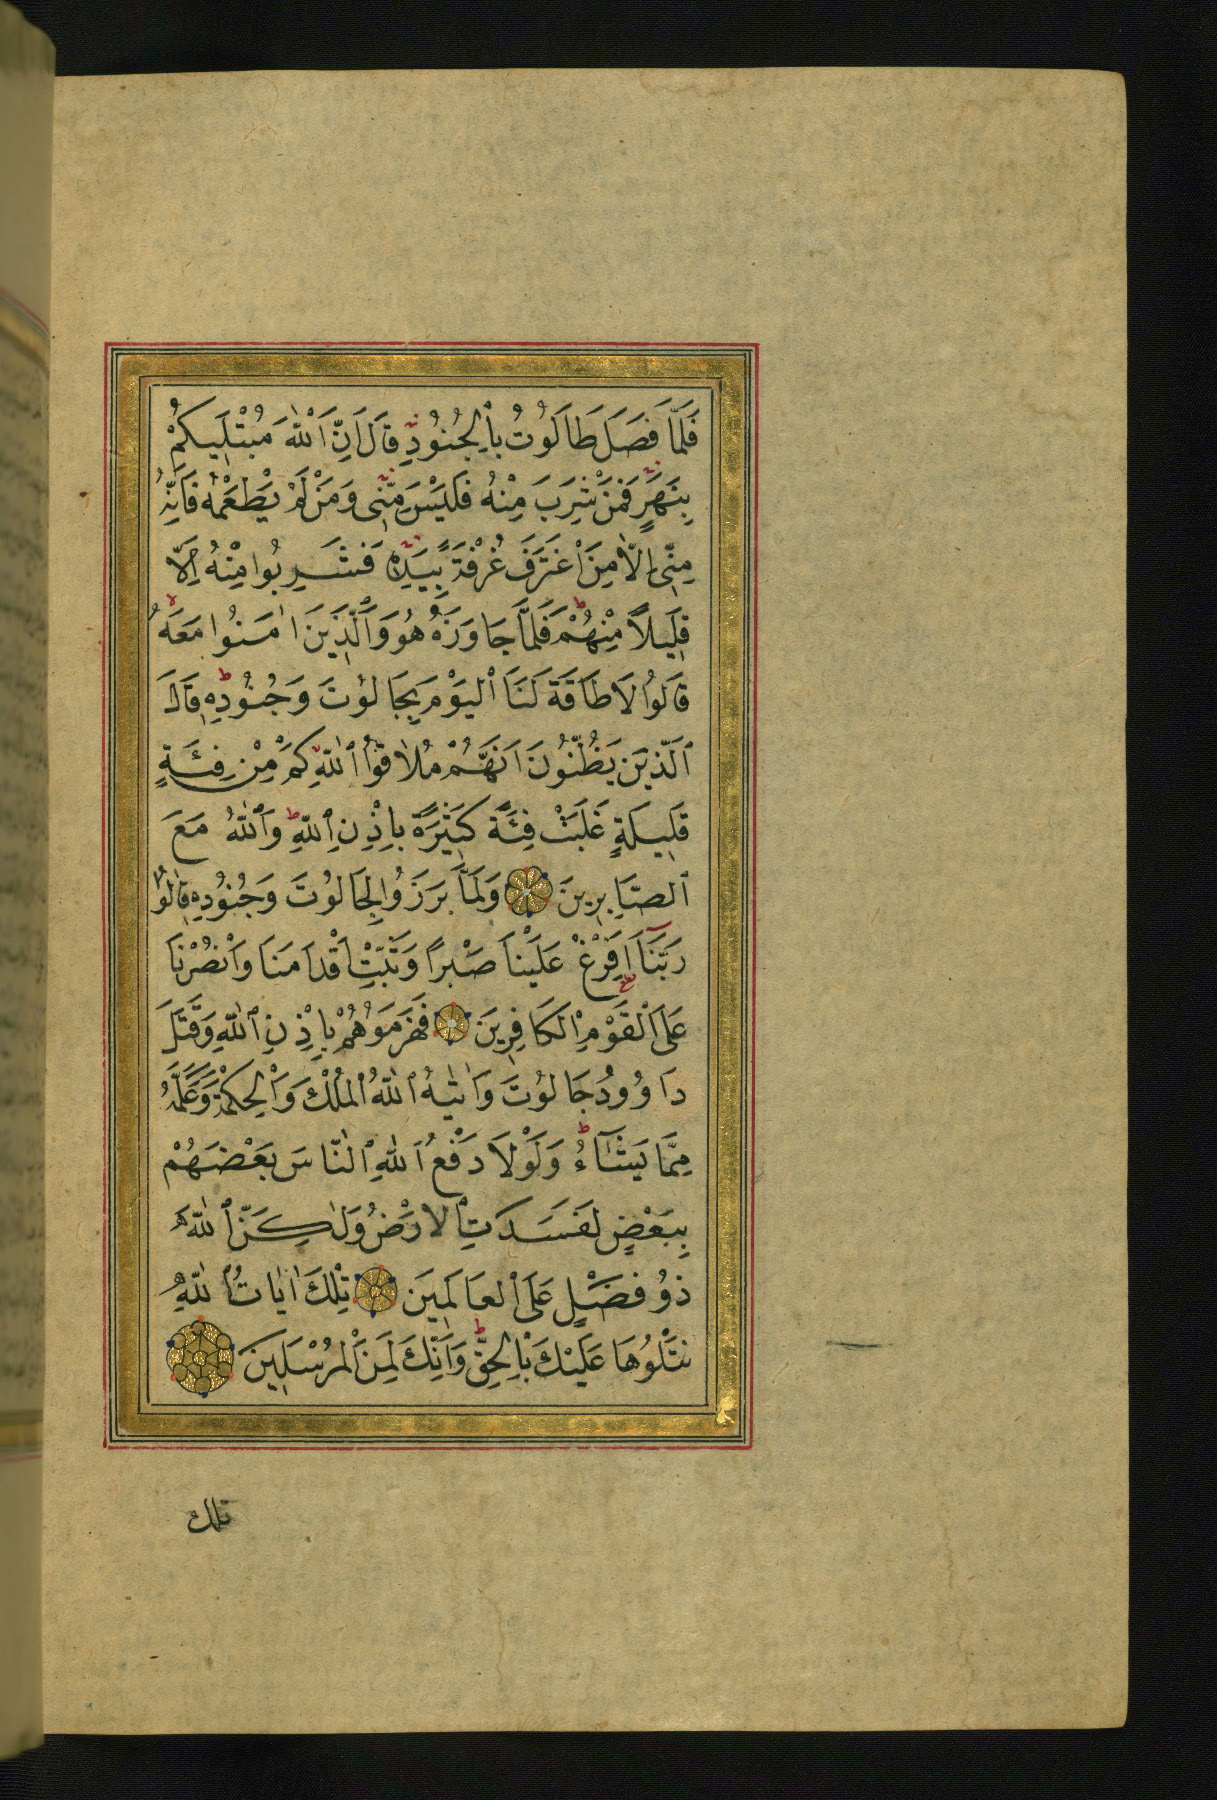 فَلَمَّا فَصَلَ طَالُوتُ بِالْجُنُودِ قَالَ اِنَّ اللّٰهَ مُبْتَلِيكُمْ
بِنَهَرٍ فَمَنْ شَرِبَ مِنْهُ فَلَيْسَ مِنّٖى وَمَنْ لَمْ يَطْعَمْهُ فَاِنَّهُ
مِنّٖى اِلَّا مَنِ اغْتَرَفَ غُرْفَةً بِيَدِهٖ فَشَرِبُوا مِنْهُ اِلَّا
قَلِيلًا مِنْهُمْ فَلَمَّا جَاوَزَهُ هُوَ وَالَّذِينَ اٰمَنُوا مَعَهُ
قَالُوا لَا طَاقَةَ لَنَا الْيَوْمَ بِجَالُوتَ وَجُنُودِهٖ قَالَ
الَّذِينَ يَظُنُّونَ اَنَّهُمْ مُلَاقُوا اللّٰهِ كَمْ مِنْ فِئَةٍ
قَلِيلَةٍ غَلَبَتْ فِئَةً كَثِيرَةً بِاِذْنِ اللّٰهِ وَاللّٰهُ مَعَ
الصَّابِرِينَ وَلَمَّا بَرَزُوا لِجَالُوتَ وَجُنُودِهٖ قَالُوا
رَبَّنَا اَفْرِغْ عَلَيْنَا صَبْرًا وَثَبِّتْ اَقْدَامَنَا وَانْصُرْنَا
عَلَى الْقَوْمِ الْكَافِرِينَ فَهَزَمُوهُمْ بِاِذْنِ اللّٰهِ وَقَتَلَ
دَاوُودُ جَالُوتَ وَاٰتٰيهُ اللّٰهُ الْمُلْكَ وَالْحِكْمَةَ وَعَلَّمَهُ
مِمَّا يَشَآءُ وَلَوْلَا دَفْعُ اللّٰهِ النَّاسَ بَعْضَهُمْ
بِبَعْضٍ لَفَسَدَتِ الْاَرْضُ وَلٰكِنَّ اللّٰهَ
ذُو فَضْلٍ عَلَى الْعَالَمِينَ تِلْكَ اٰيَاتُ اللّٰهِ
نَتْلُوهَا عَلَيْكَ بِالْحَقِّ وَاِنَّكَ لَمِنَ الْمُرْسَلِينَ
تلك